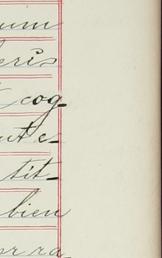 um
eris
cog-
ut e-
tit-
bien
or ra-